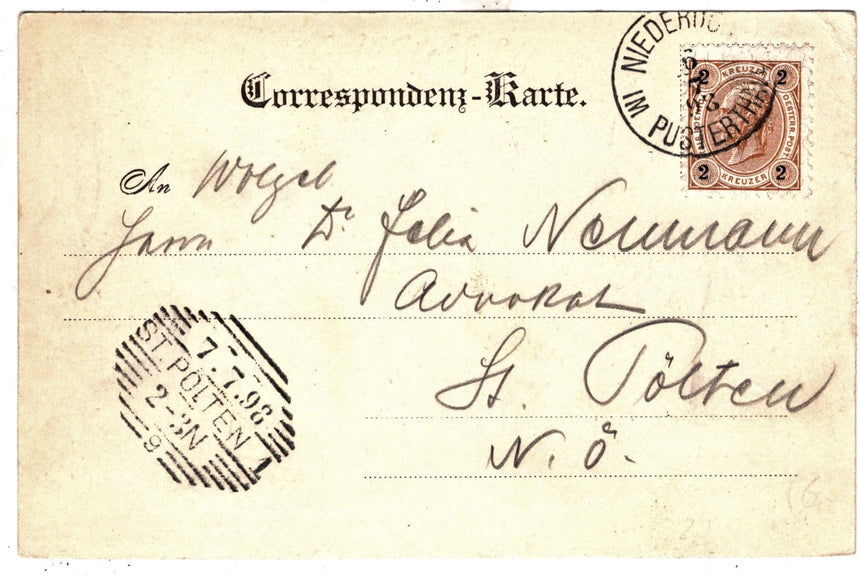 Correspondenz-Karte.
NIEDERDO
IM PUSTERTHAL
6
7
98
2 KREUZER 2
OESTERR. POST
2 KREUZER 2
An Wolgeb
Herrn Dr Felix Neumann
Advokat
St. Pölten
N. Ö.
ST. PÖLTEN 1
7.7.98
2-3N
9